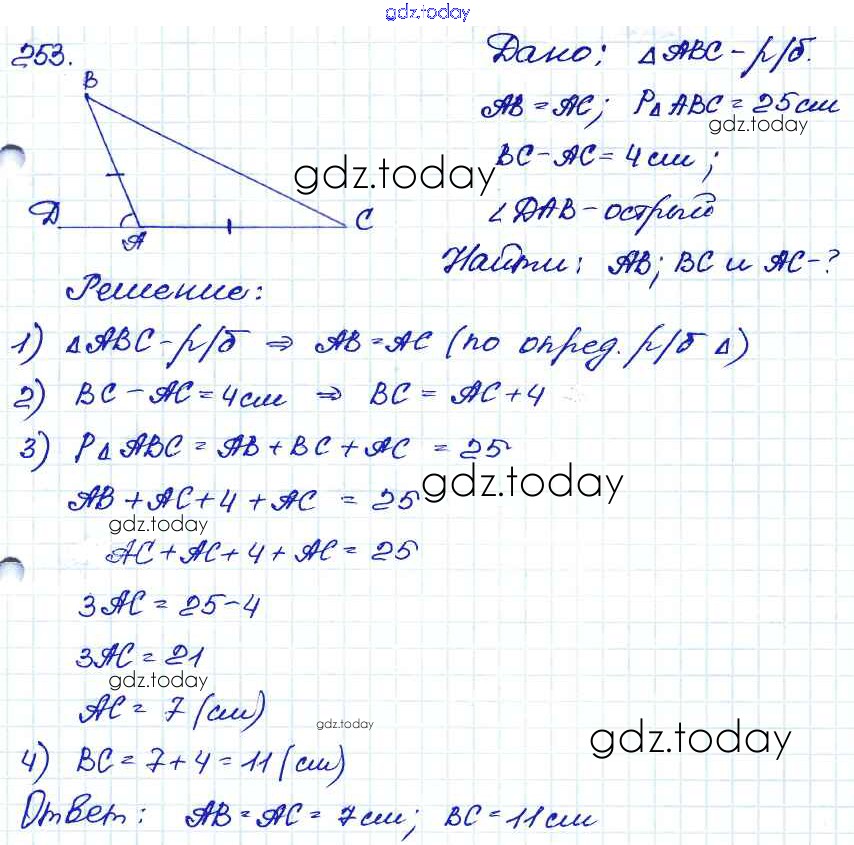 gdz.today
253.
Дано: △ABC - р/б.
AB = AC; P△ABC = 25 см
gdz.today
BC - AC = 4 см;
gdz.today
∠DAB - острый
Найти: AB; BC и AC - ?
B
D
A
C
Решение:
1) △ABC - р/б ⇒ AB = AC (по опред. р/б △)
2) BC - AC = 4 см ⇒ BC = AC + 4
3) P△ABC = AB + BC + AC = 25
AB + AC + 4 + AC = 25
gdz.today
gdz.today
AC + AC + 4 + AC = 25
3AC = 25 - 4
3AC = 21
gdz.today
AC = 7 (см)
gdz.today
gdz.today
4) BC = 7 + 4 = 11 (см)
Ответ: AB = AC = 7 см; BC = 11 см